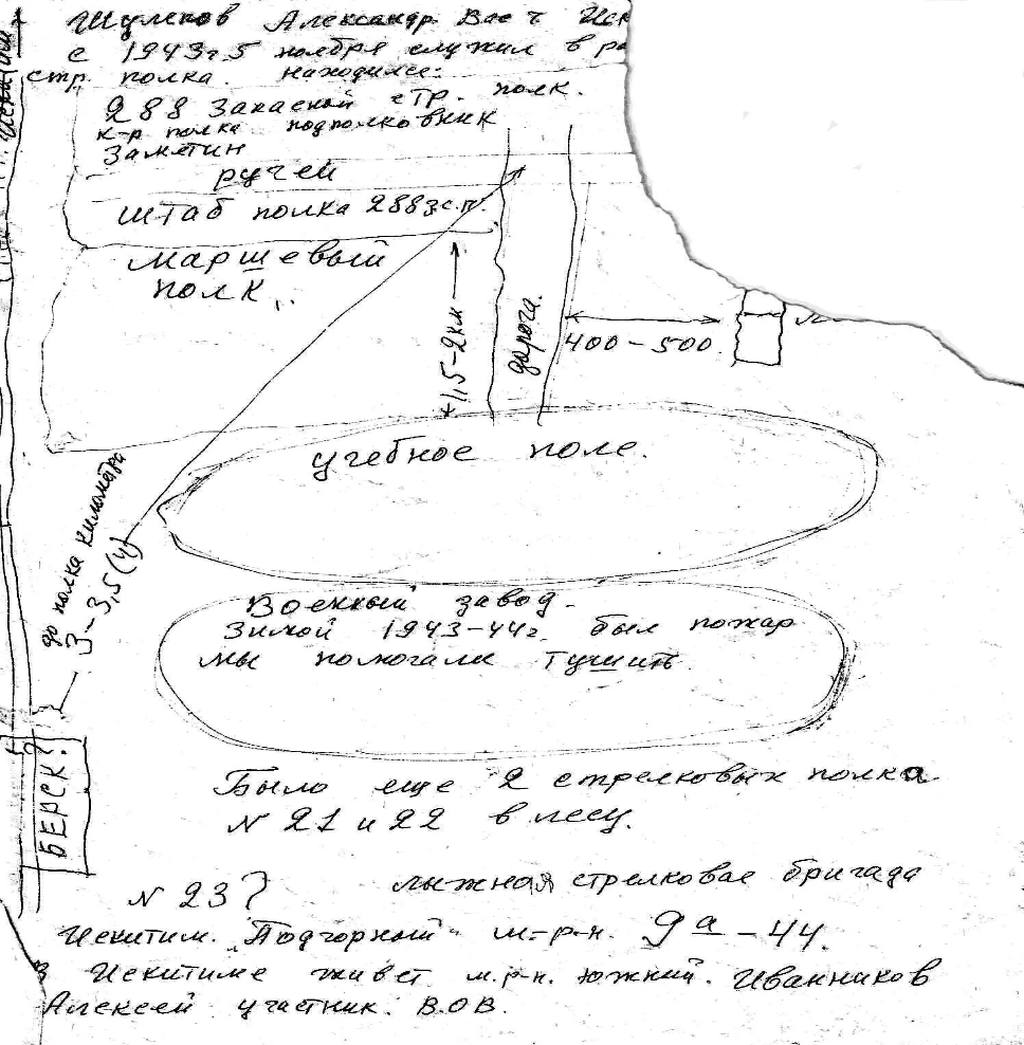 Шулепов Александр Вас ч Иск
с 1943г 5 ноября служил в ра
стр. полка. находился:
288 Запасной стр. полк.
к-р полка подполковник
Заметин
ручей
штаб полка 288 з с.п.
маршевый
полк
1,5-2км
дорога.
400-500
учебное поле.
до полка километра
3-3,5 (4)
Военный завод.
Зимой 1943-44г. был пожар
мы помогали тушить.
БЕРСК?
Было еще 2 стрелковых полка
N 21 и 22 в лесу.
N 23? лыжная стрелковая бригада
Искитим. "Подгорный" м-р-н. 9а-44.
Искитиме живет м.р-н. Южный. Иванников
Алексей участник. В.О.В.